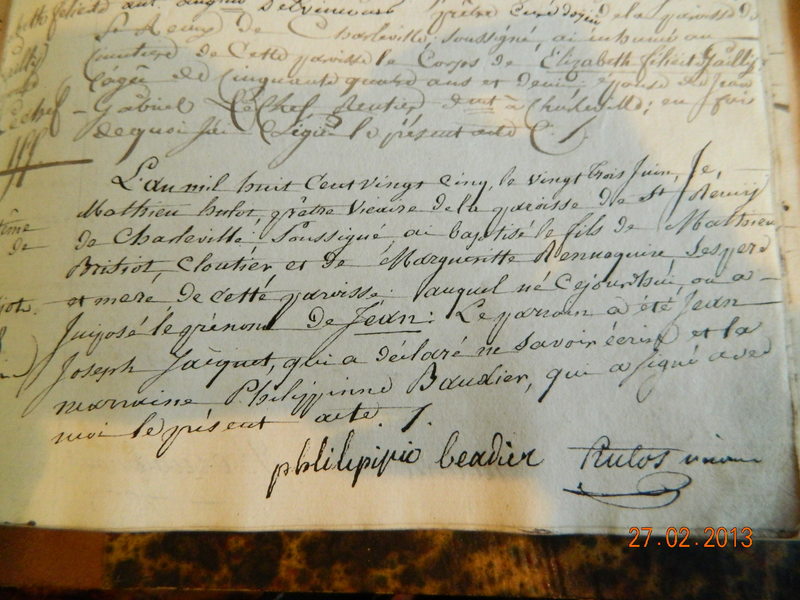 prêtre curé doyen de la paroisse de
St Remy de Charleville, soussigné, ai inhumé au
cimetière de cette paroisse le Corps de Elizabeth félicité Gailly
agée de cinquante quatre ans et demi, épouse de Jean
Gabriel Echef Rentier à Charleville; en foi
de quoi j'ai rédigé le présent acte
L'an mil huit Cent vingt cinq, le vingt trois Juin, Je,
Mathieu hulot, prêtre Vicaire de la paroisse de St Remij
de Charleville. Soussigné, ai baptisé le fils de Mathieu
Bristiot, Cloutier et de Margueritte Rennequine, Ses pere
et mere, de cette paroisse. auquel né cejourd'hui, on a
imposé le prénom De Jean: Le parrain a été Jean
Joseph Jacquet, qui a déclaré ne savoir écrire et la
marraine Philippinne Baudier, qui a signé avec
moi le présent acte ./.
beadier Hulot vicaire
27.02.2013